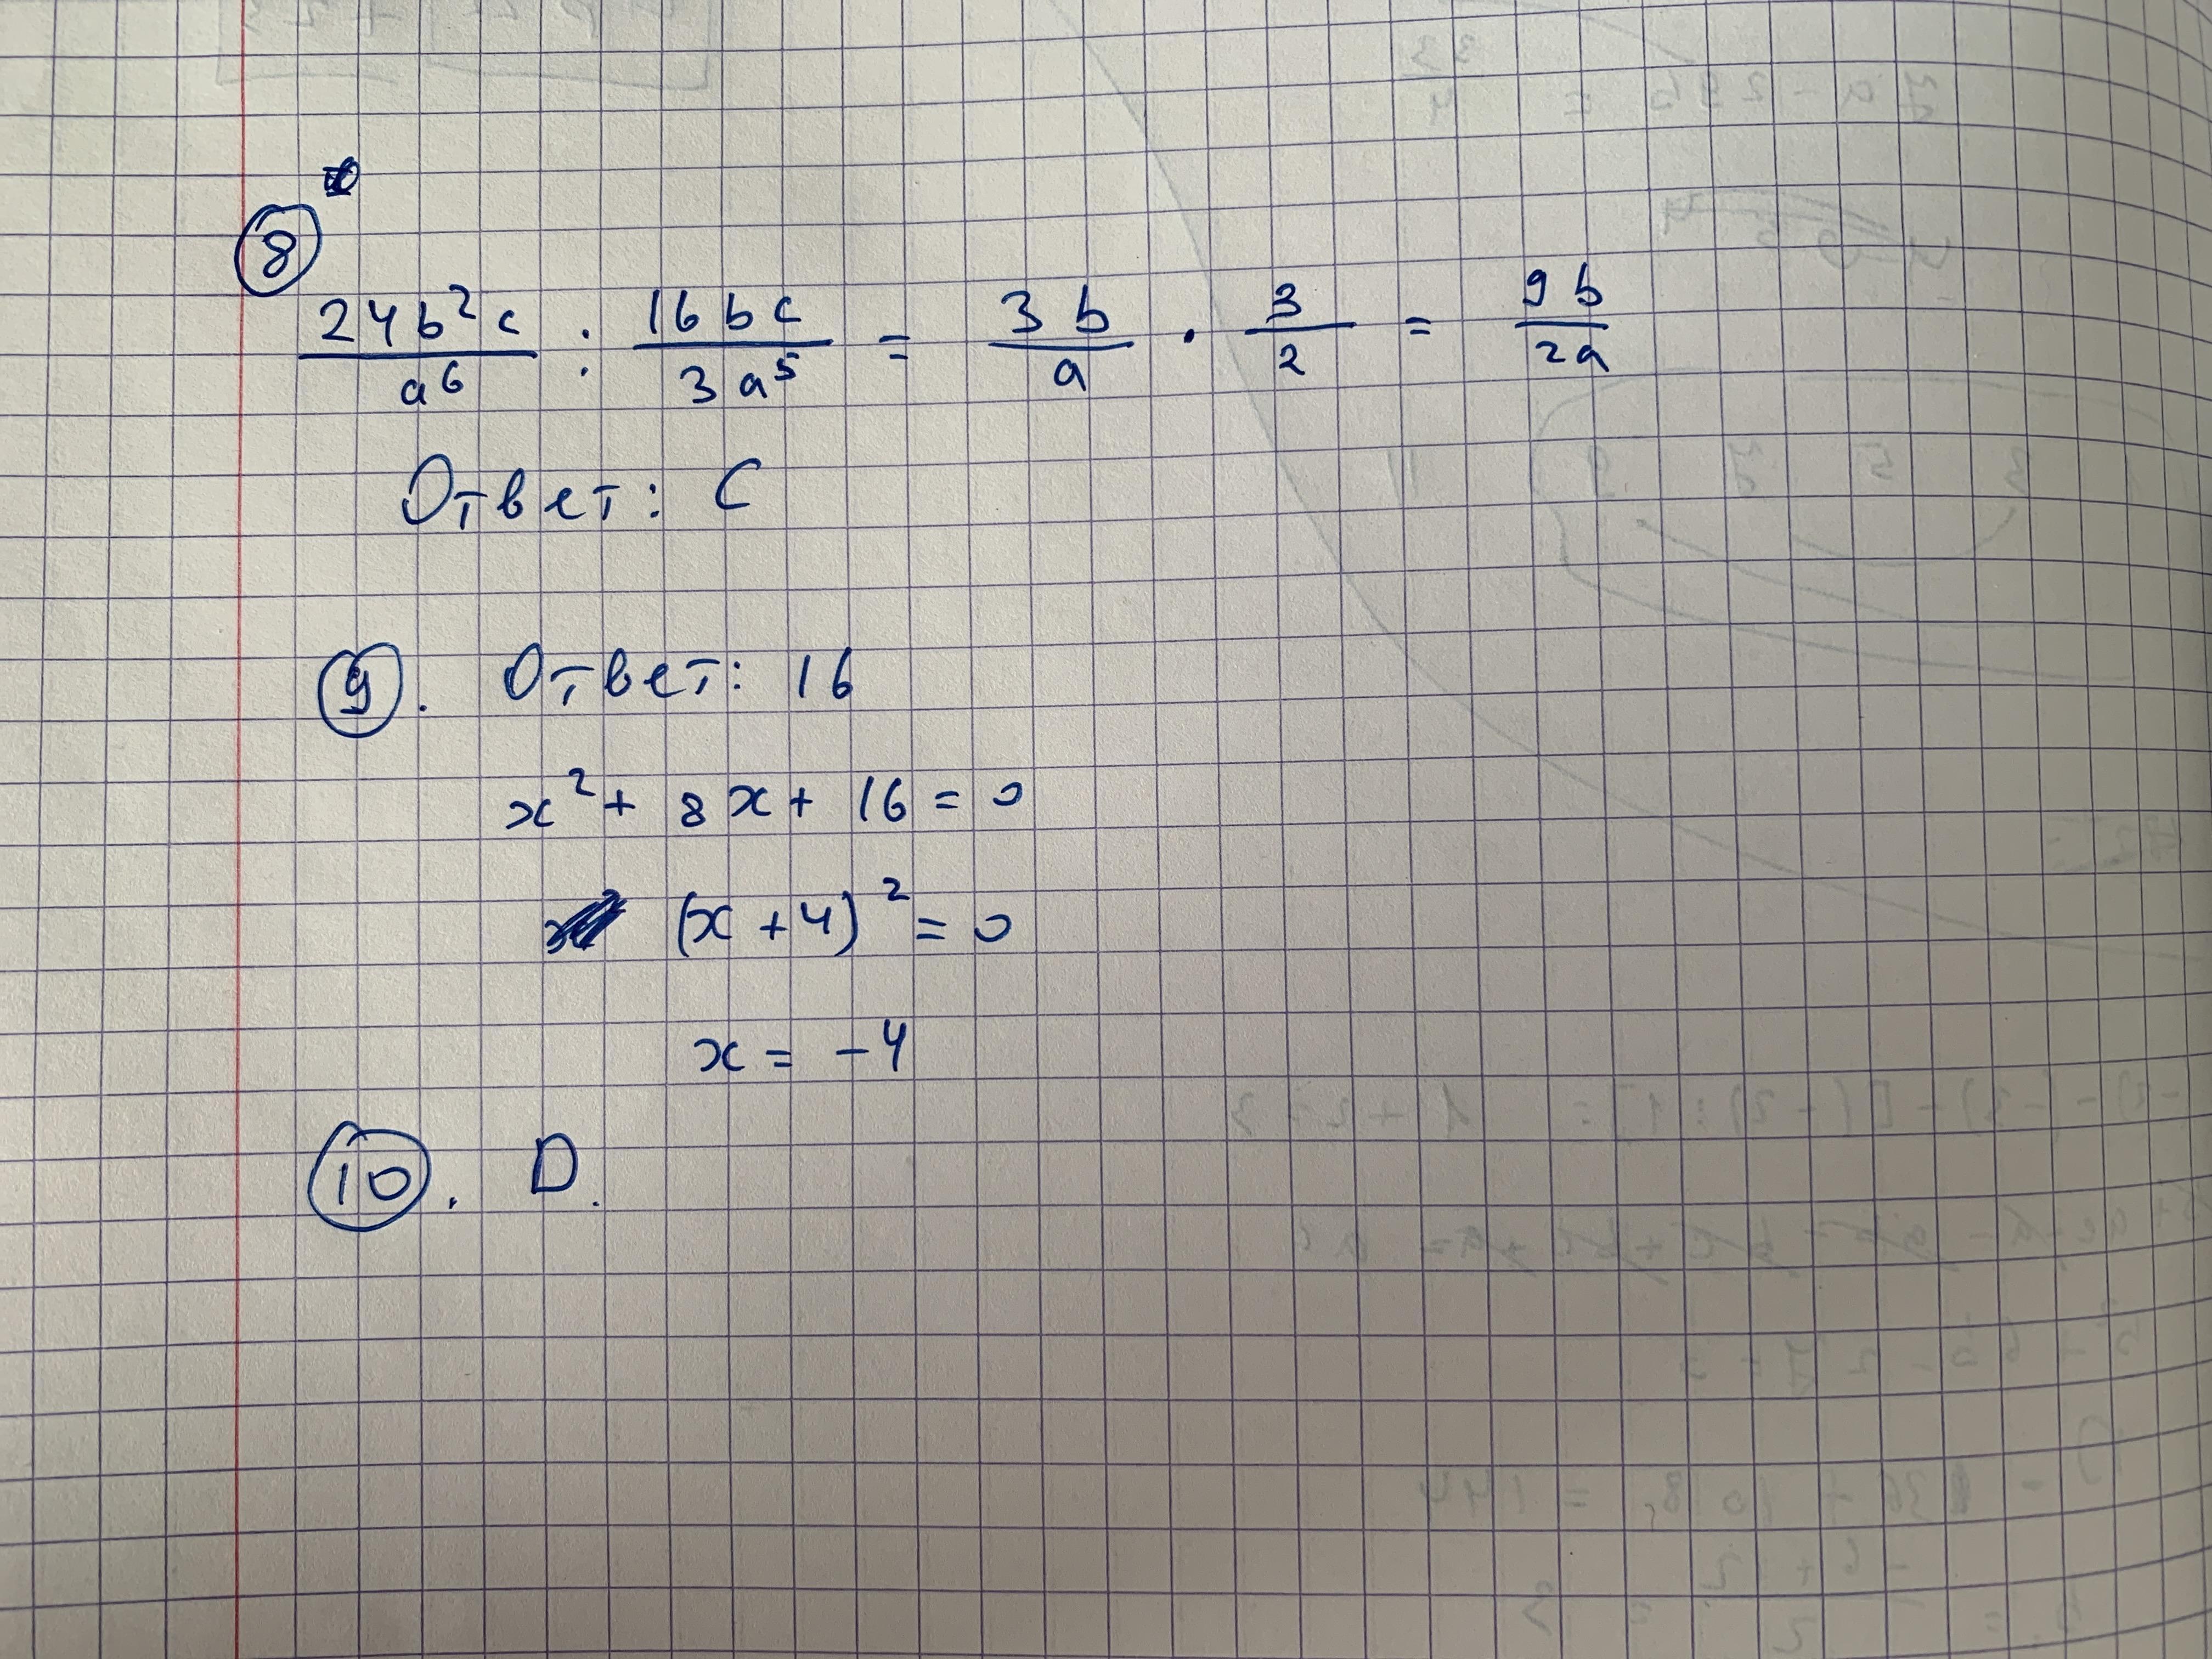 8
24b²c/a⁶ : 16bc/3a⁵ = 3b/a · 3/2 = 9b/2a
Ответ: C
9. Ответ: 16
x² + 8x + 16 = 0
(x + 4)² = 0
x = -4
10. D.